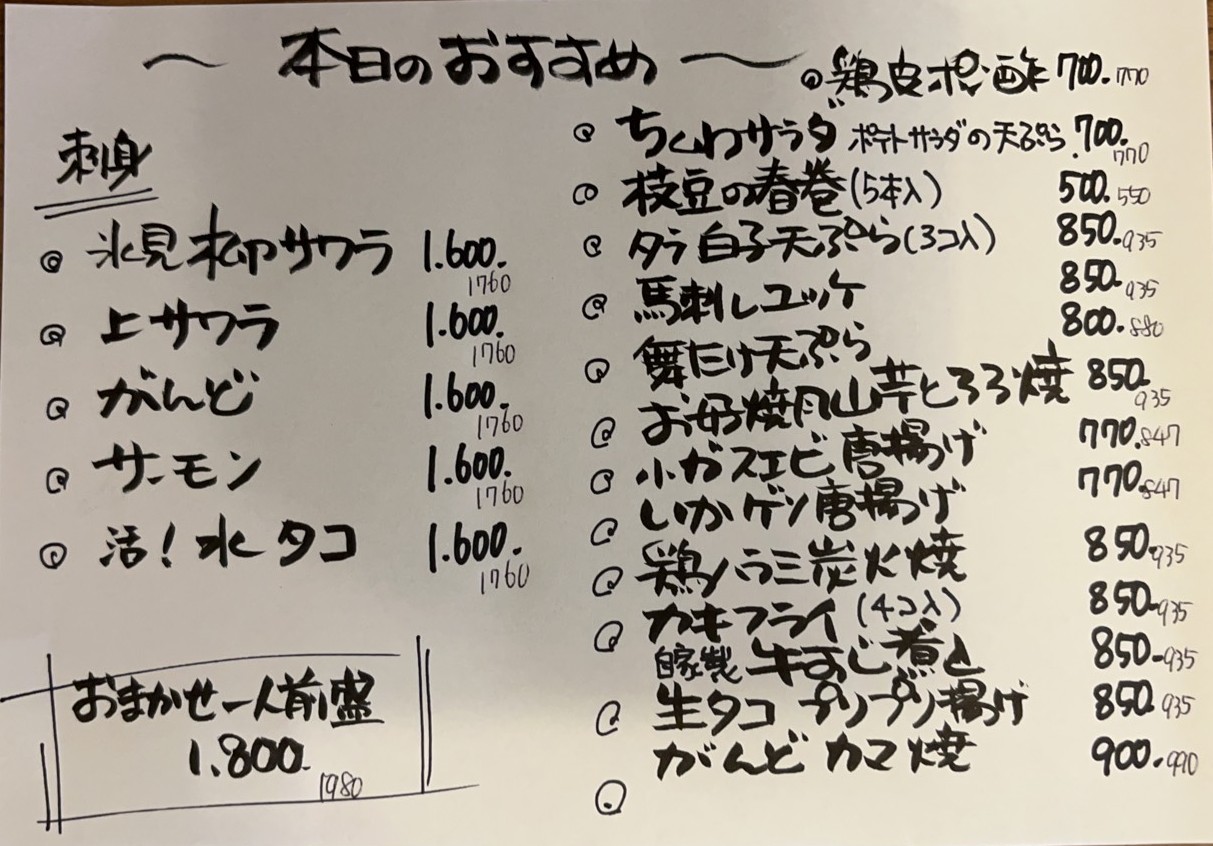 ～ 本日のおすすめ ～
刺身
◎ 氷見 柳サワラ 1.600. 1760
◎ 上サワラ 1.600. 1760
◎ がんど 1.600. 1760
◎ サーモン 1.600. 1760
◎ 活！水タコ 1.600. 1760
おまかせ一人前盛
1.800. 1980
◎ 鶏皮ポン酢 700. 770
◎ ちくわサラダ ポテトサラダの天ぷら 700. 770
◎ 枝豆の春巻(5本入) 500. 550
◎ タラ白子天ぷら(3コ入) 850. 935
◎ 馬刺しユッケ 850. 935
◎ 舞たけ天ぷら 800. 880
◎ お好焼風山芋とろろ焼 850. 935
◎ 小ガスエビ唐揚げ 770. 847
◎ いかゲソ唐揚げ 770. 847
◎ 鶏ハラミ炭火焼 850. 935
◎ カキフライ(4コ入) 850. 935
自家製 牛すじ煮込 850. 935
◎ 生タコ プリプリ揚げ 850. 935
◎ がんどカマ焼 900. 990